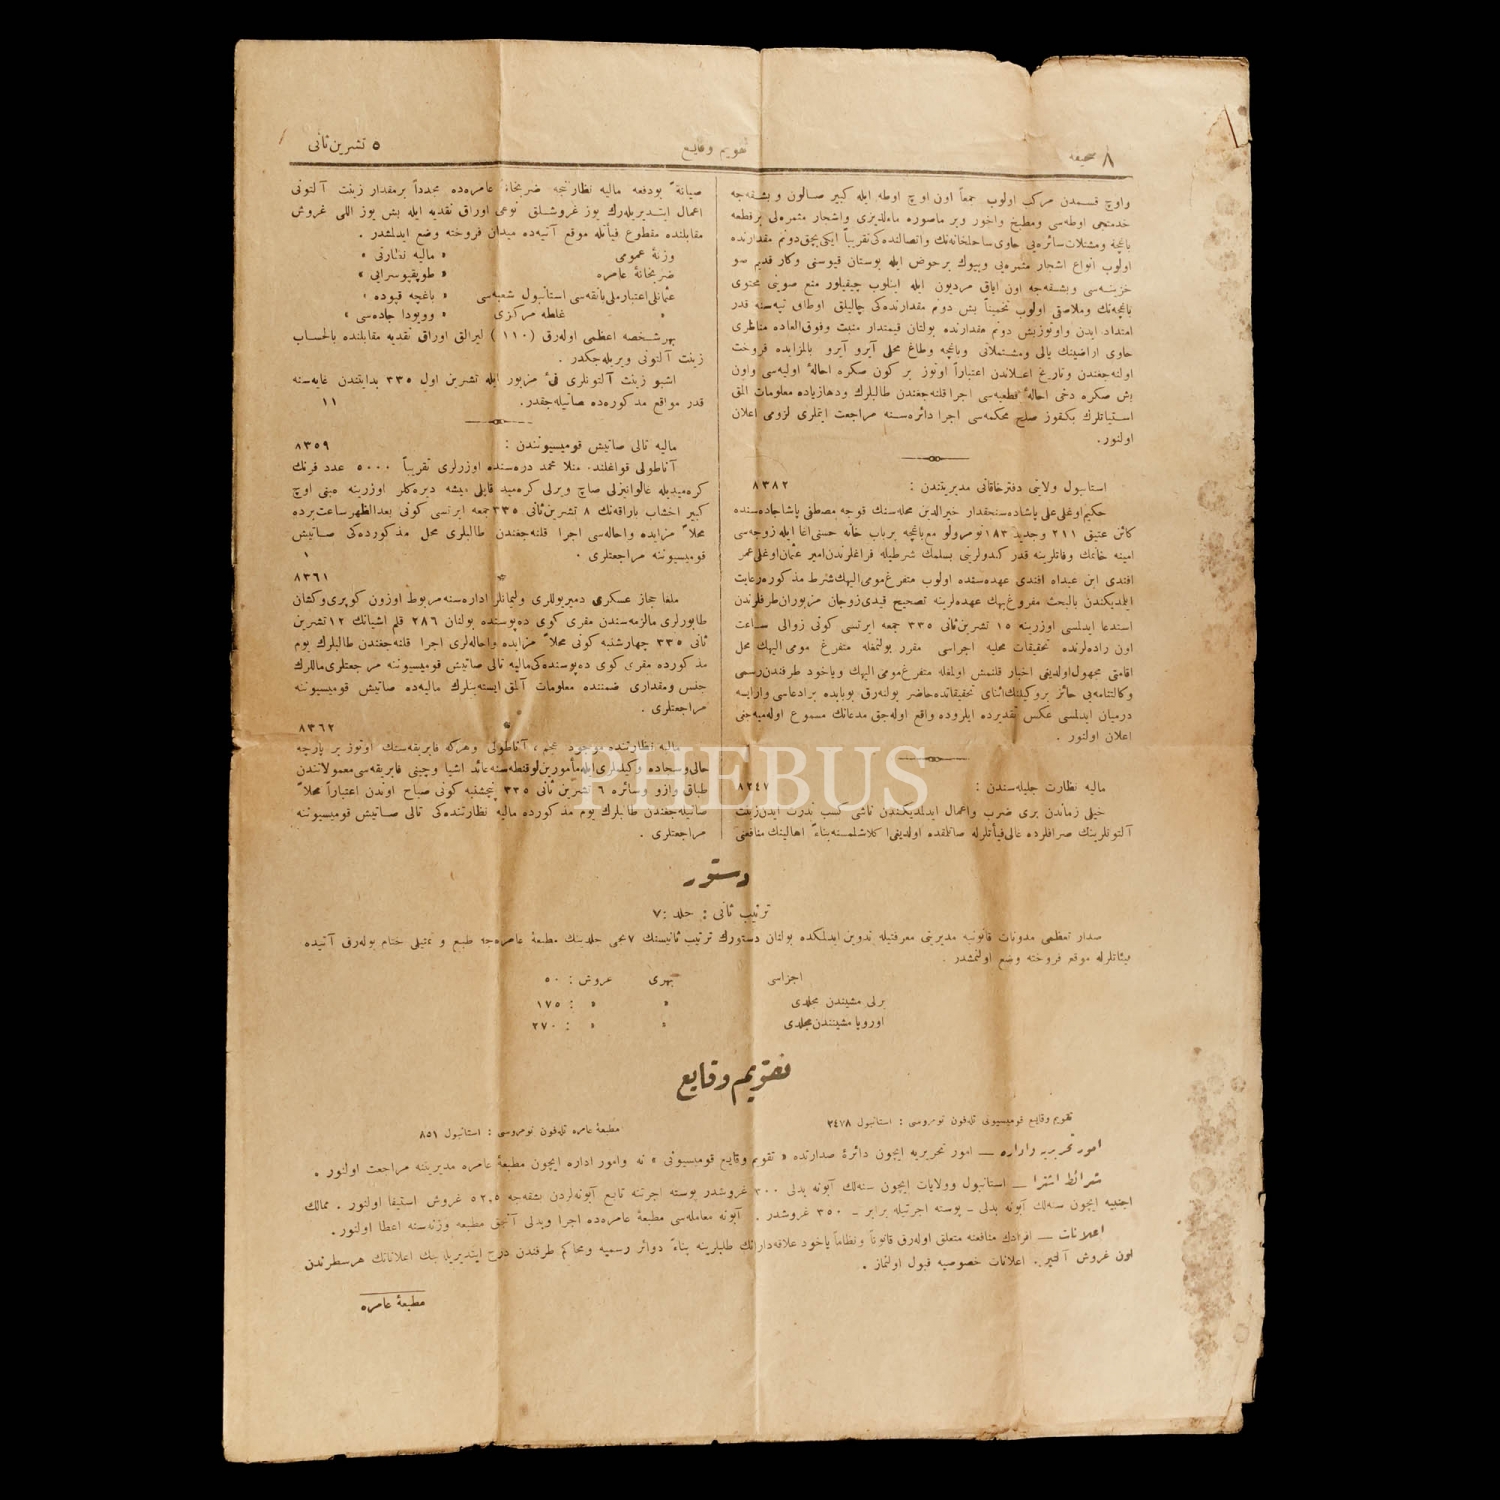 ٨ صحیفه
تقویم وقایع
٥ تشرین ثانی
واوچ قسمدن مرکب اولوب جمعاً اون اوچ اوطه ایله کبیر صالون وبشقه‌جه
خدمتجی اوطه‌سی ومطبخ واخور وبر ماصوره ماءلذیزی واشجار مثمره‌لی برقطعه
باغچه ومشتملات سائره‌یی حاوی ساحلخانه‌نك واتصالنده‌کی تقریباً ایکی بچق دونم مقدارنده
اولوب انواع اشجار مثمره‌یی وبیوك برحوض ایله بوستان قیوسنی وکار قدیم صو
خزینه‌سی وبشقه‌جه اون ایاق مردیون ایله اینلوب
باغچه‌نك وملاصق اولوب تخمیناً بش دونم مقدارنده‌کی چالیلق اوطاق تپه‌سنه قدر
امتداد ایدن واوتوزبش دونم مقدارنده بولنان قیمتدار منبت وفوق‌العاده مناظری
حاوی اراضینك یالی ومشتملاتی وباغچه وطاغ محلی آیرو آیرو بالمزایده فروخت
اولنه‌جغندن وتاریخ اعلاندن اعتباراً اوتوز بر کون صکره احالهٔ اولیه‌سی واون
بش صکره دخی احالهٔ قطعیه‌سی اجرا قلنه‌جغندن طالبلرك ودهازیاده معلومات المق
استیانلرك بکقوز صلح محکمه‌سی اجرا دائره‌سنه مراجعت ایتملری لزومی اعلان
اولنور.
استانبول ولایتی دفترخاقانی مدیریتندن : ٨٣٨٢
حکیم‌اوغلی علی پاشاده سنجقدار خیرالدین محله‌سنك قوجه مصطفی پاشاجاده‌سنده
کائن عتیق ٢١١ وجدید ١٨٣ نومرولو مع‌باغچه برباب خانه حسنی اغا ایله زوجه‌سی
امینه خانمك وفاتلرینه قدر کندولرینی بسلمك شرطیله فراغلرندن امیر عثمان اوغلی عمر
افندی ابن عبدالله افندی عهده‌سنده اولوب متفرغ مومی‌الیهك شرط مذکوره رعایت
ایلمدیکندن بالبحث مفروغ‌بهك عهده‌لرینه تصحیح قیدی زوجان مزبوران طرفلرندن
استدعا ایدلمسی اوزرینه ١٥ تشرین‌ثانی ٣٣٥ جمعه ایرتسی کونی زوالی ساعت
اون راده‌لرنده تحقیقات محلیه اجراسی مقرر بولنمغله متفرغ مومی الیهك محل
اقامتی مجهول‌اولدیغی اخبار قلنمش اولمغله متفرغ مومی‌الیهك ویاخود طرفندن رسمی
وکالتنامه‌یی حائز بروکیلنك اثنای تحقیقاتده حاضر بولنه‌رق بوبابده برادعاسی وارایسه
درمیان ایدلمسی عکس تقدیرده ایلروده واقع اوله‌جق مدعانك مسموع اوله‌میه‌جغی
اعلان اولنور .
مالیه نظارت جلیله‌سندن : ٨٢٤٧
خیلی زماندن بری ضرب واعمال ایدلمدیکندن ناشی کسب ندرت ایدن زینت
آلتونلرینك صرافلرده عالی فیأتلرله صاتلقده اولدیغی اکلاشلمسنه‌بناءً اهالینك منافعنی
صیانةً بودفعه مالیه نظارتنجه ضربخانهٔ عامره‌ده مجدداً برمقدار زینت آلتونی
اعمال ایتدیریله‌رك یوز غروشلق نوعی اوراق نقدیه ایله بش یوز اللی غروش
مقابلنده مقطوع فیأتله موقع آتیه‌ده میدان فروخته وضع ایدلمشدر .
وزنهٔ عمومی « مالیه نظارتی »
ضربخانهٔ عامره « طوپقپوسرایی »
عثمانلی اعتبار ملی بانقه‌سی استانبول شعبه‌سی « باغچه قپوده »
» غلطه مرکزی « وویودا جاده‌سی »
بهرشخصه اعظمی اوله‌رق (١١٠) لیرالق اوراق نقدیه مقابلنده بالحساب
زینت آلتونی ویریله‌جکدر .
اشبو زینت آلتونلری فیء مزبور ایله تشرین اول ٣٣٥ بدایتندن غایه‌سنه
قدر مواقع مذکوره‌ده صاتیله‌جقدر. ١١
مالیه تالی صاتیش قومیسیوتندن : ٨٣٥٩
آناطولی قواغلنده منلا محمد دره‌سنده اوزرلری تقریباً ٥٠٠٠ عدد فرنك
کره‌میدیله غالوانیزلی صاچ ویرلی کره‌مید قاپلی میشه دیره‌کلر اوزرینه مبنی اوچ
کبیر اخشاب باراقه‌نك ٨ تشرین‌ثانی ٣٣٥ جمعه ایرتسی کونی بعدالظهر ساعت برده
محلاً مزایده واحاله‌سی اجرا قلنه‌جغندن طالبلری محل مذکورده‌کی صاتیش
قومیسیوننه مراجعتلری . ١
٨٣٦١
ملغا حجاز عسکری دمیریوللری ولیمانلر اداره‌سنه مربوط اوزون کوپری وکشان
طابورلری مالزمه‌سندن مقری کوی ده‌پوسنده بولنان ٢٨٦ قلم اشیانك ١٢ تشرین
ثانی ٣٣٥ چهارشنبه کونی محلاً مزایده واحاله‌لری اجرا قلنه‌جغندن طالبلرك یوم
مذکورده مقری کوی ده‌پوسنده‌کی مالیه تالی صاتیش قومیسیوننه مراجعتلری ماللرك
جنس ومقداری ضمننده معلومات آلمق ایسته‌ینلرك مالیه‌ده صاتیش قومیسیوننه
مراجعتلری .
٨٣٦٢
مالیه نظارتنده موجود عجم ، آناطولی وهرکه فابریقه‌سنك اوتوز بر پارچه
حالی وسجاده وکلیملری ایله مأمورین لوقنطه‌سنه عائد اشیا وچینی فابریقه‌سی معمولاتندن
طباق وازو وسائره ٦ تشرین ثانی ٣٣٥ پنجشنبه کونی صباح اوندن اعتباراً محلاً
صاتیله‌جغندن طالبلرك یوم مذکورده مالیه نظارتنده‌کی تالی صاتیش قومیسیوننه
مراجعتلری .
دستور
ترتیب ثانی : جلد :٧
صدارتعظمی مدونات قانونیه مدیریتی معرفتیله تدوین ایدلمکده بولنان دستورك ترتیب ثانیسنك ٧نجی جلدینك مطبعهٔ عامره‌جه طبع و تمثیلی ختام بوله‌رق آتیده
فیئاتلرله موقع فروخته وضع اولنمشدر .
اجزاسی بهری غروش : ٥٠
یرلی مشیندن مجلدی » » : ١٧٥
اوروپا مشینندن مجلدی » » : ٢٧٠
تقویم وقایع
تقویم وقایع قومیسیونی تله‌فون نومروسی : استانبول ٢٤٧٨
مطبعهٔ عامره تله‌فون نومروسی : استانبول ٨٥١
امور تحریریه واداره — امور تحریریه ایچون دائرهٔ صدارتده « تقویم وقایع قومیسیونی » نه وامور اداره ایچون مطبعهٔ عامره مدیریتنه مراجعت اولنور .
شرائط اشترا — استانبول وولایات ایچون سنه‌لك آبونه بدلی ٣٠٠ غروشدر پوسته اجرتنه تابع آبونه‌لردن بشقه‌جه ٥٢,٥ غروش استیفا اولنور . ممالك
اجنبیه ایچون سنه‌لك آبونه بدلی ـ پوسته اجرتیله برابر ـ ٣٥٠ غروشدر . آبونه معامله‌سی مطبعهٔ عامره‌ده اجرا وبدلی آنجق مطبعه وزنه‌سنه اعطا اولنور .
اعلانات — افرادك منافعنه متعلق اوله‌رق قانوناً ونظاماً یاخود علاقه‌دارانك طلبلرینه بناءً دوائر رسمیه ومحاکم طرفندن درج ایتدیریله‌جك اعلاناتك هرسطرندن
اون غروش آلنیر . اعلانات خصوصیه قبول اولنماز .
مطبعهٔ عامره
PHEBUS